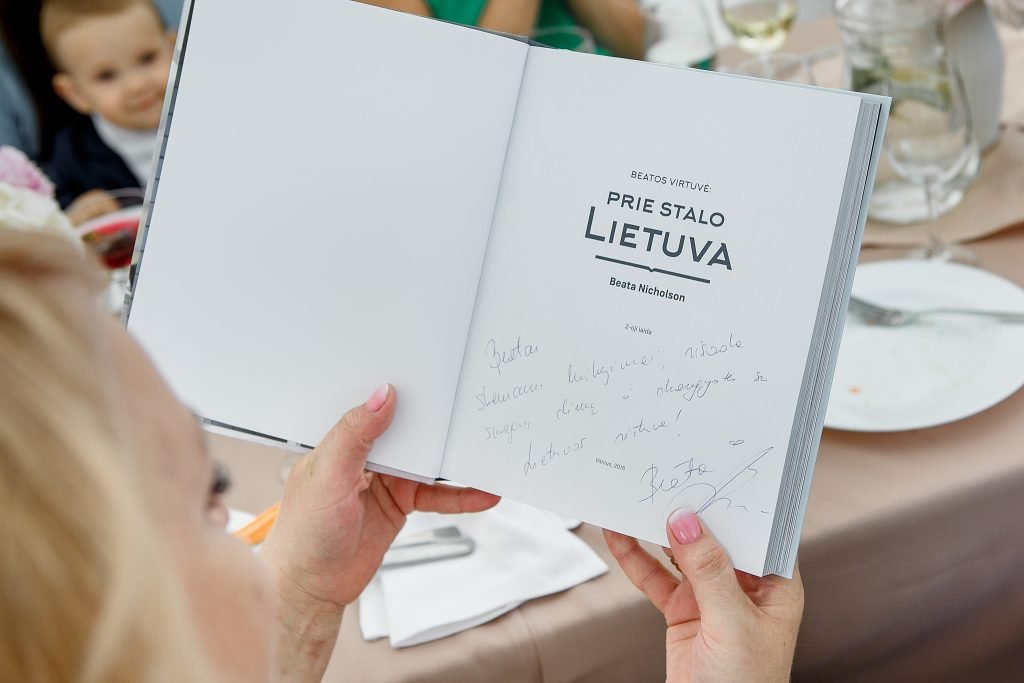 BEATOS VIRTUVĖ:
PRIE STALO
LIETUVA
Beata Nicholson
2-oji laida
Beatai
skaniami linkėjimai, visada
smagių ir
Lietuvos virtuve!
Vilnius, 2016
Beata